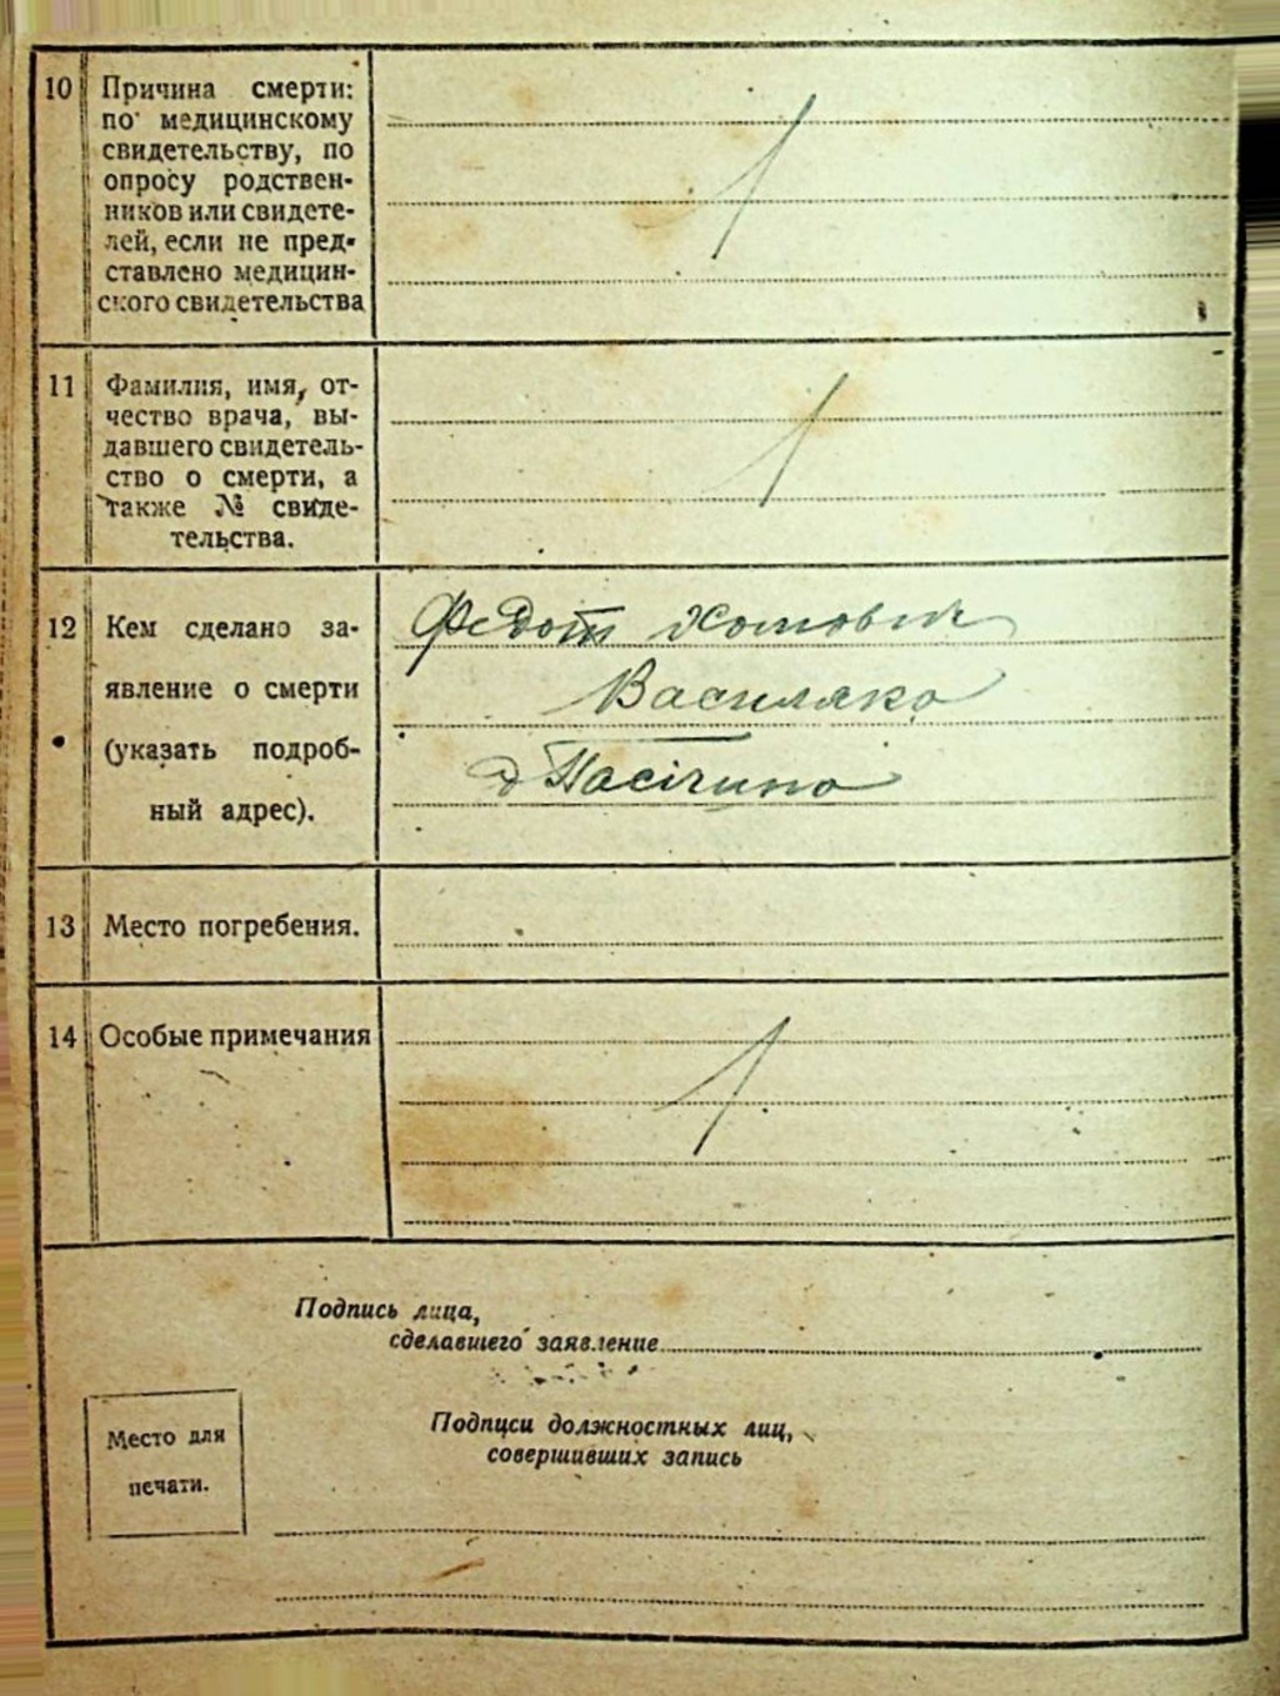 10 Причина смерти:
по медицинскому
свидетельству, по
опросу родствен-
ников или свидете-
лей, если не пред-
ставлено медицин-
ского свидетельства
11 Фамилия, имя, от-
чество врача, вы-
давшего свидетель-
ство о смерти, а
также № свиде-
тельства.
12 Кем сделано за-
явление о смерти
(указать подроб-
ный адрес).
Федот Хомовик
Василяко
д Пасічино
13 Место погребения.
14 Особые примечания
Подпись лица,
сделавшего заявление
Место для
печати.
Подписи должностных лиц,
совершивших запись